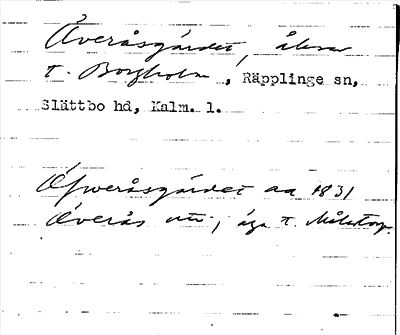 Äveråsgärdet, åkrar
t. Borgholm, Räpplinge sn,
Slättbo hd, Kalm. l.
Öfweråsgärdet aa 1831
Överås utr.; äga t.